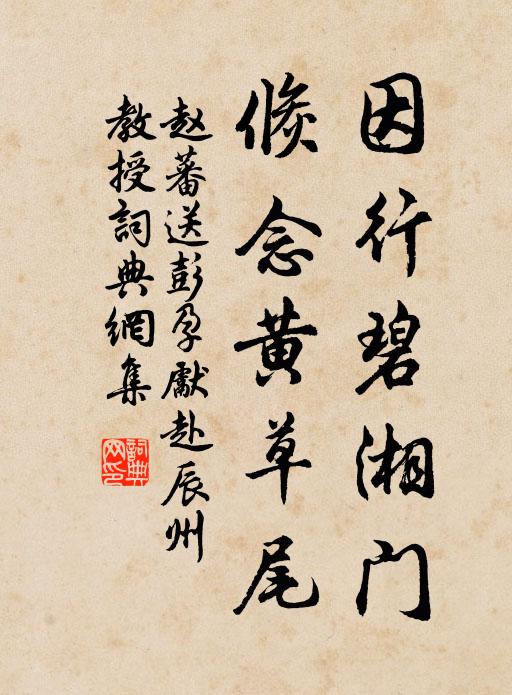 因行碧湘门
倏念黄草尾
赵蕃送彭孕献赴辰州
教授詞典網集
詞典网印